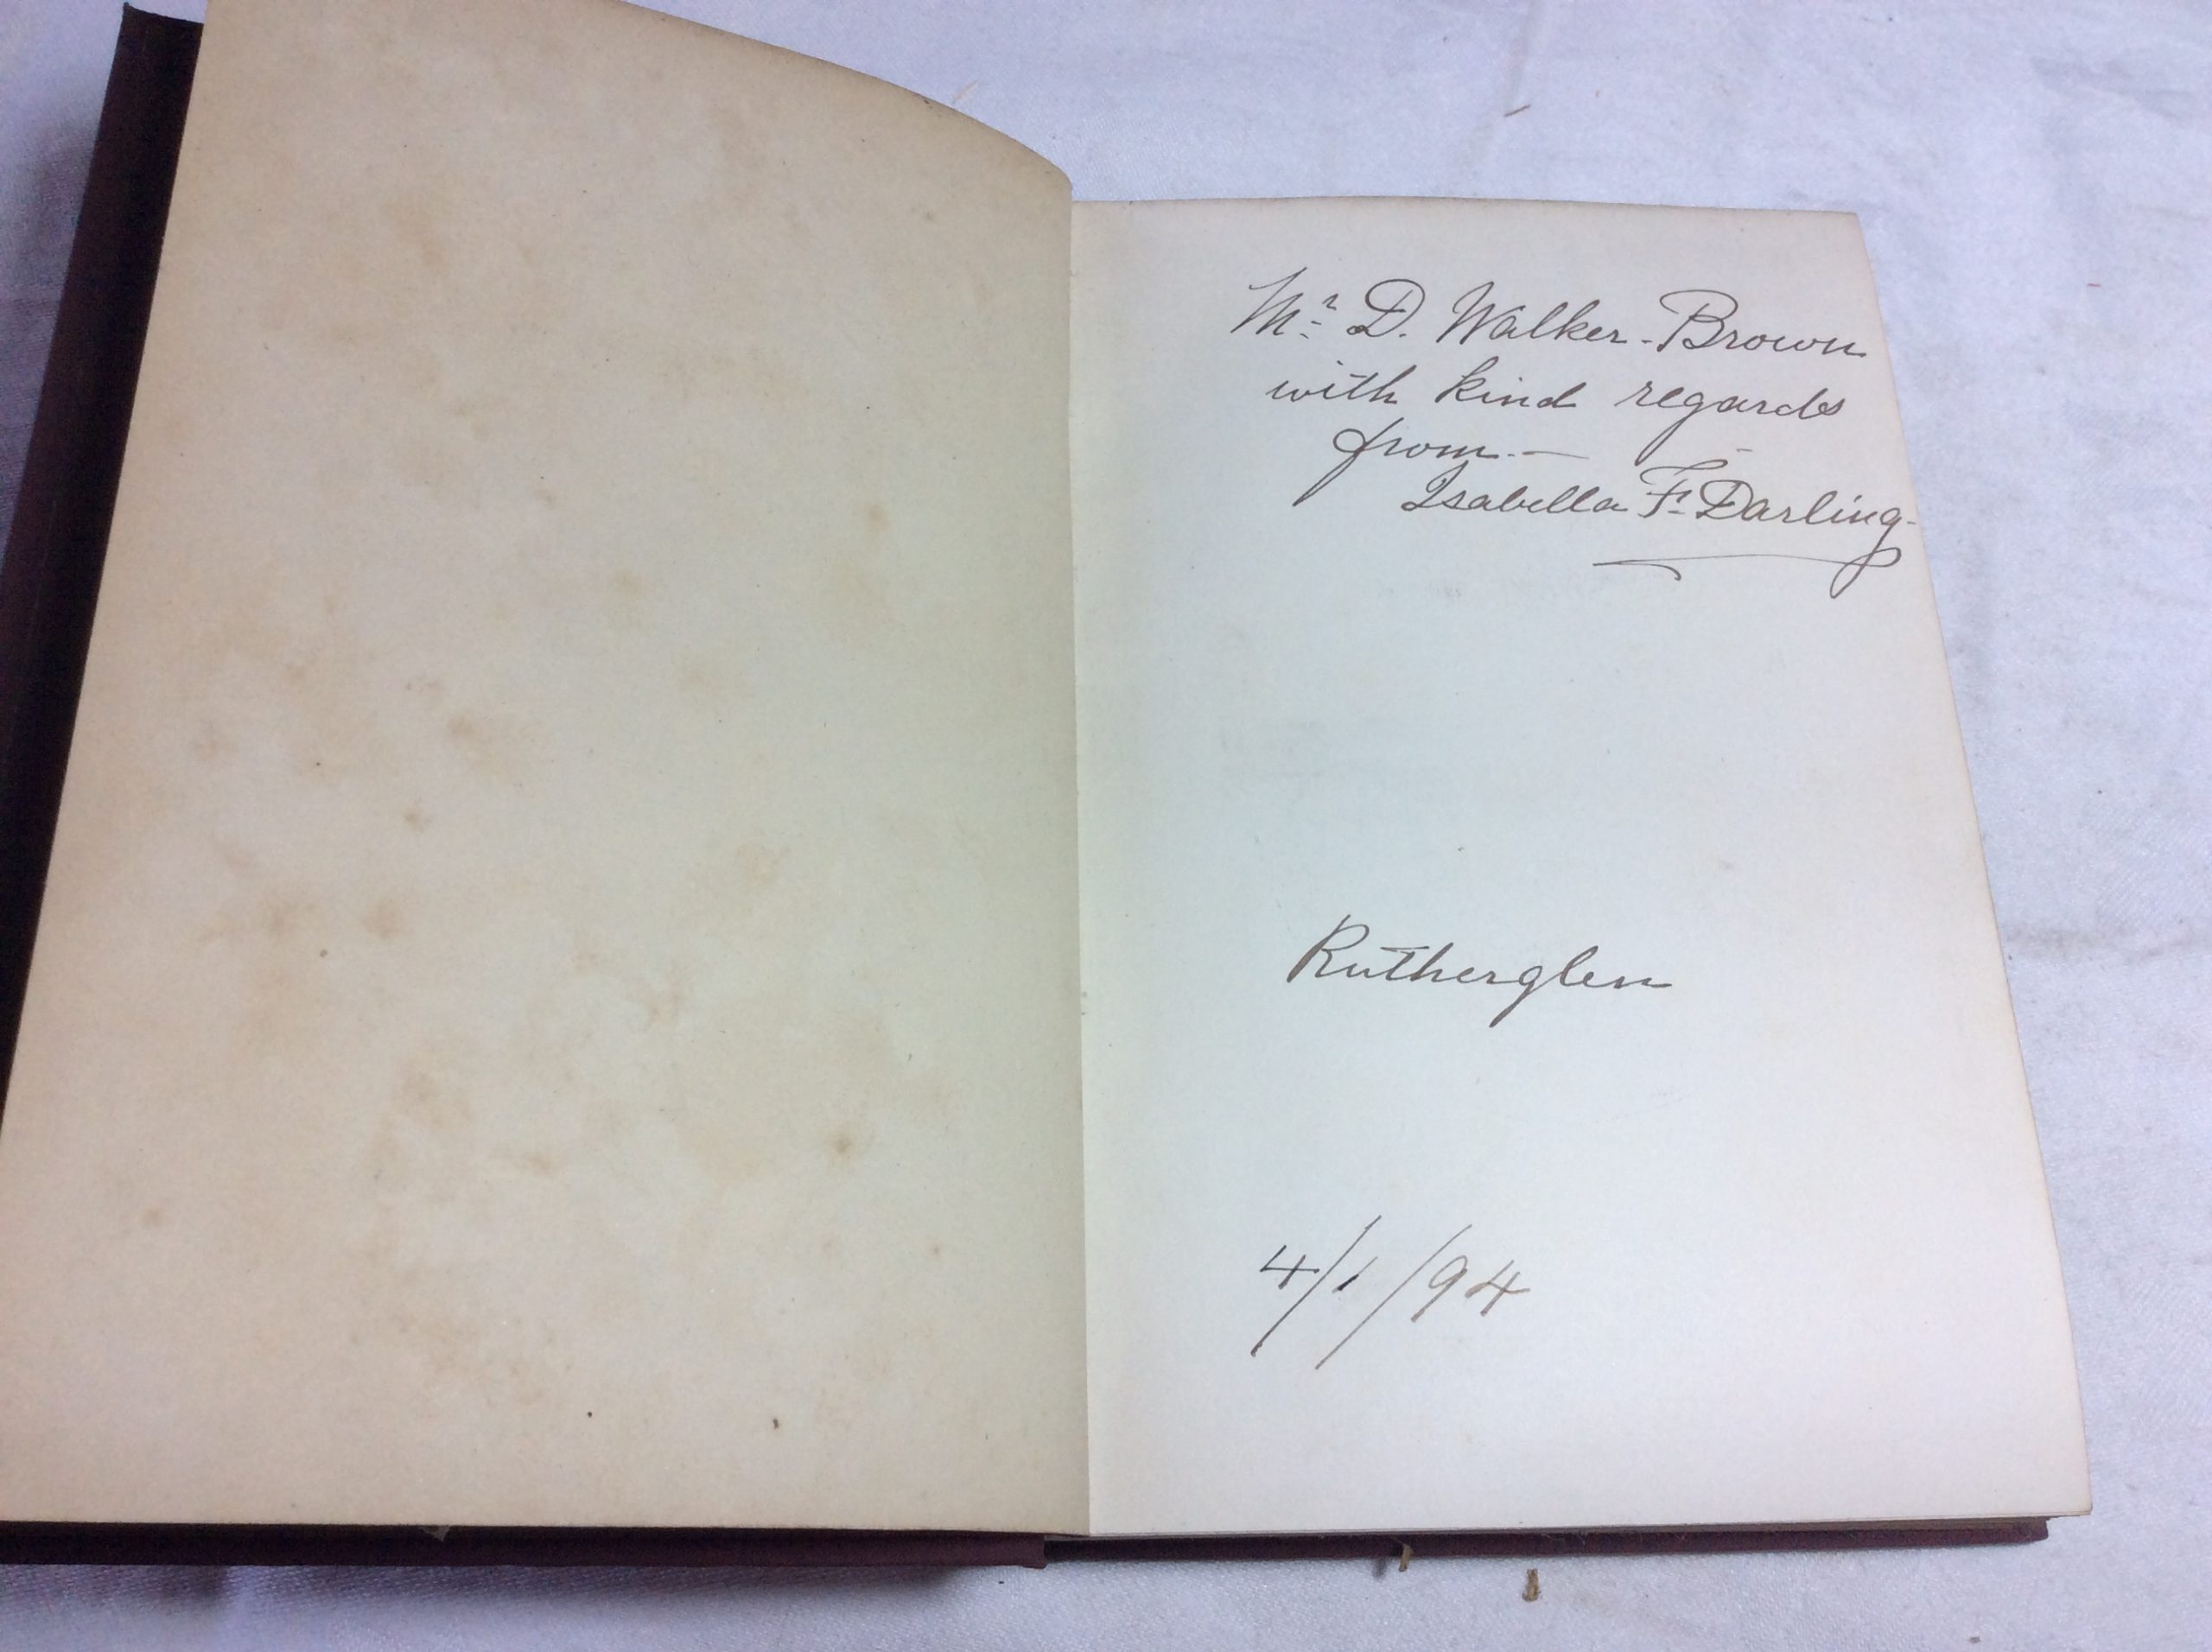 Mr D. Walker-Brown
with kind regards
from.—
Isabella F. Darling.
Rutherglen
4/1/94